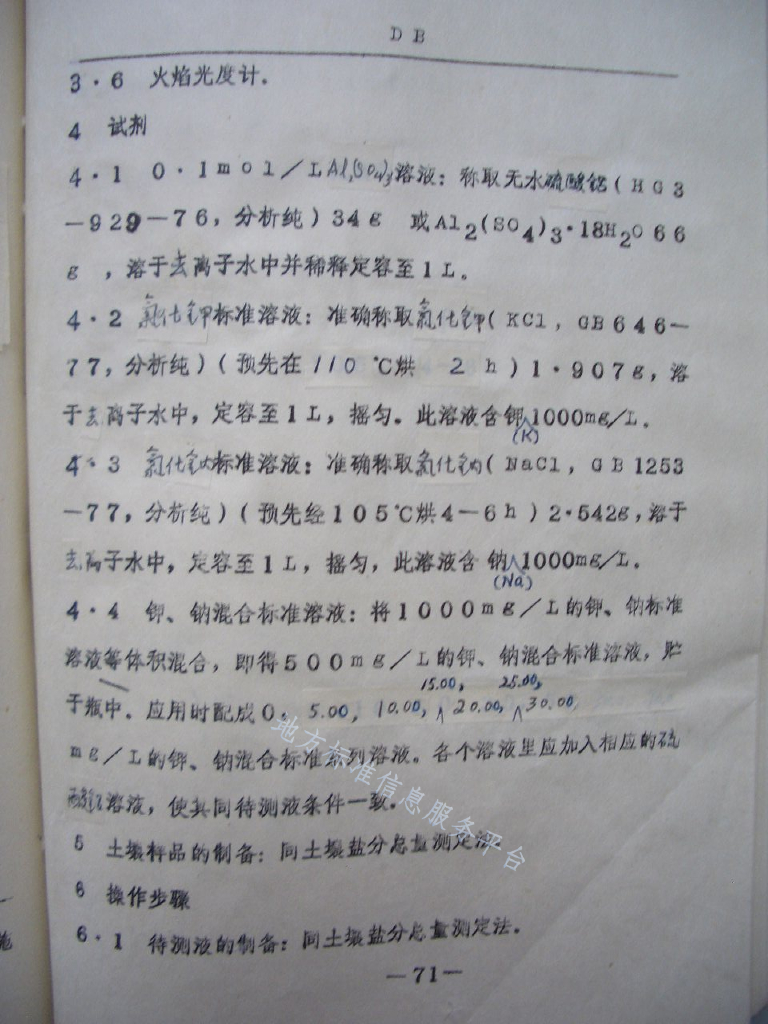 DB
3·6 火焰光度计.
4 试剂
4·1 0·1mol/LAl₂(SO₄)₃溶液：称取无水硫酸铝(HG3
-929-76,分析纯)34g 或Al₂(SO₄)₃·18H₂O 66
g ,溶于去离子水中并稀释定容至1L。
4·2 氯化钾标准溶液：准确称取氯化钾(KCl, GB646-
77,分析纯)(预先在110℃烘 2h)1·907g,溶
于去离子水中,定容至1L,摇匀。此溶液含钾1000mg/L。
(K)
4·3 氯化钠标准溶液：准确称取氯化钠(NaCl, GB1253
-77,分析纯)(预先经105℃烘4-6h)2·542g,溶于
去离子水中,定容至1L,摇匀,此溶液含 钠1000mg/L.
(Na)
4·4 钾、钠混合标准溶液：将1000mg/L的钾、钠标准
溶液等体积混合,即得500mg/L的钾、钠混合标准溶液,贮
15.00, 25.00,
于瓶中。应用时配成0. 5.00, 10.00, 20.00, 30.00,
mg/L的钾、钠混合标准系列溶液。各个溶液里应加入相应的硫
酸铝溶液,使其同待测液条件一致。
5 土壤样品的制备：同土壤盐分总量测定法.
6 操作步骤
6·1 待测液的制备：同土壤盐分总量测定法.
-71-
地方标准信息服务平台